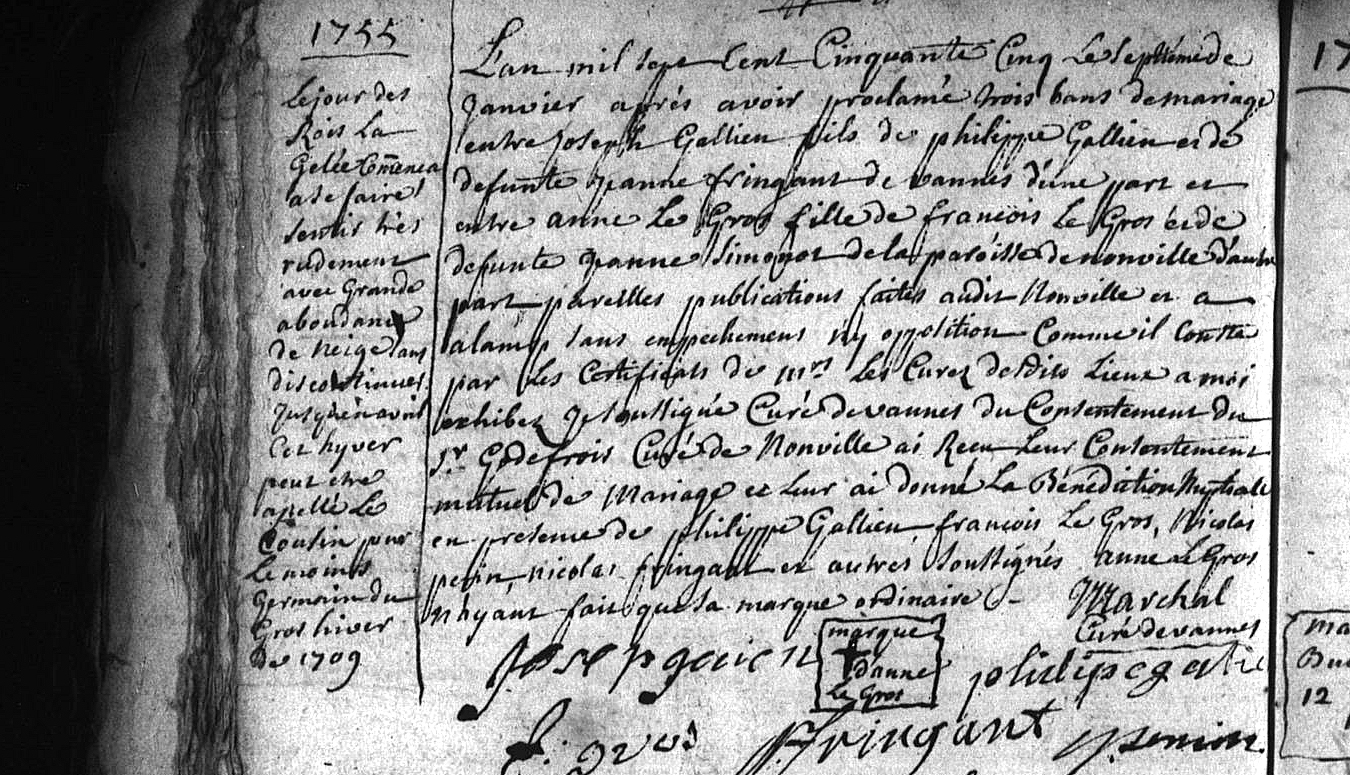 1755
Le jour des
Rois La
Gelée Comença
a se faire
sentir tres
rudement
avec Grande
abondance
de neige sans
discontinuer
Jusqu'en avril
Cet hyver
peut etre
apellé Le
Cousin pour
Le moins
Germain du
Gros hiver
De 1709
L'an mil sept Cent Cinquante Cinq Le septiéme de
Janvier aprés avoir proclamé trois bans de mariage
entre Joseph Gallien fils de philippe Gallien et de
defunte Jeanne fringant de vannes d'une part et
entre anne Le Gros fille de francois Le Gros et de
defunte Jeanne Simonot de la paroisse de nonville d'autre
part pareilles publications faites audit Nonville et a
sans empechement ny opposition Comme il Conste
par Les Certificats de mrs Les Curez desdits Lieux a moi
exhibez Je soussigné Curé de vannes du Consentement du
Sr Godefrois Curé de Nonville ai Recu Leur Consentement
mutuel de Mariage et Leur ai donné La Bénédiction Nuptiale
en presence de philippe Gallien francois Le Gros, Nicolas
perin nicolas fringant et autres Soussignés anne Le Gros
n'ayant fait que sa marque ordinaire
Marchal
Curé de vannes
Joseph galien
marque
danne
Le Gros
philipe galie
fringant
17
ma
12